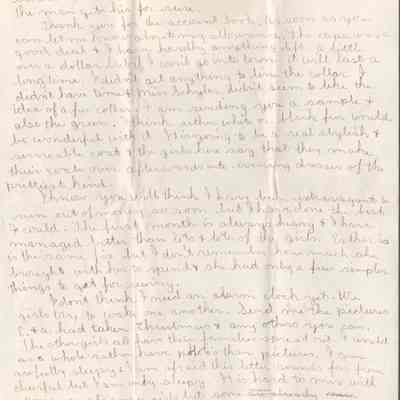 The man gets his for sure.
Thank you for the account book. As soon as you
can let me know about my allowance. The cape was a
good deal & I have hardly anything left a little
over a dollar but if I don't go into town it will last a
long time. I didn't get anything to line the collar. I
didn't have time & Miss Schyler didn't seem to like the
idea of a fur collar. I am sending you a sample &
also the green. I think either white or black fur would
be wonderful with it. It is going to be a real stylish &
serviceable coat & the girls here say that they make
their coats over afterwards into evening dresses of the
prettiest kind.
I know you will think I have been extravagant to
run out of money so soon but I have done the best
I could. The first month is always heavy & I have
managed better than lots & lots of the girls. Esther is
in the same fix but I don't remember how much she
brought with her to spend & she had only a few simple
things to get for sewing.
I don't think I need an alarm clock yet. We
girls try to wake one another. Send me the pictures
E. & a. had taken Christmas & any others you can.
The other girls all have their families spread out. I would
as a whole rather have photos than pictures. I am
awfully sleepy & I am afraid this letter sounds far from
cheerful but I am only sleepy. It is hard to mix with
girls but some